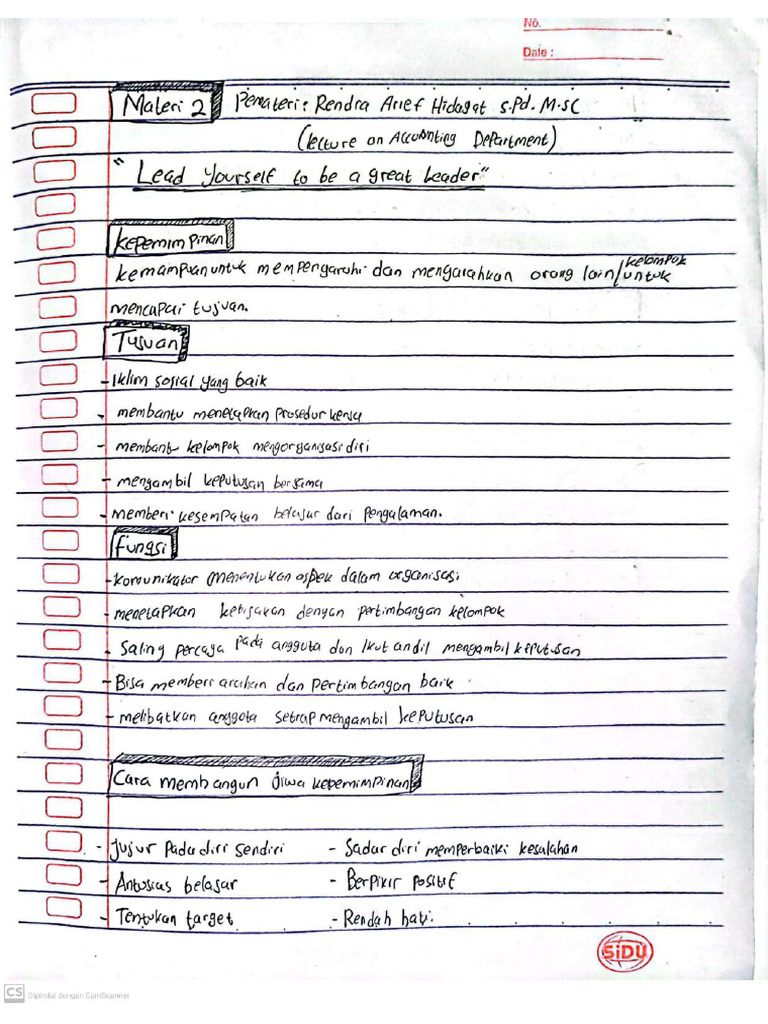 No.
Date :
Materi 2 Pemateri: Rendra Arief Hidayat S.Pd. M.SC
(lecture on Accounting Department)
"Lead Yourself to be a great Leader"
Kepemimpinan
kemampuan untuk mempengaruhi dan mengarahkan orang lain/kelompok untuk
mencapai tujuan.
Tujuan
- Iklim sosial yang baik
- membantu menetapkan prosedur kerja
- membantu kelompok mengorganisasi diri
- mengambil keputusan bersama
- memberi kesempatan belajar dari pengalaman.
Fungsi
- Komunikator menentukan aspek dalam organisasi
- menetapkan kebijakan dengan pertimbangan kelompok
- Saling percaya pada anggota dan Ikut andil mengambil keputusan
- Bisa memberi arahan dan pertimbangan baik
- melibatkan anggota setiap mengambil keputusan
Cara membangun jiwa kepemimpinan
- Jujur Pada diri sendiri - Sadar diri memperbaiki kesalahan
- Antusias belajar - Berpikir Positif
- Tentukan target - Rendah hati.
SiDU
CS Dipindai dengan CamScanner